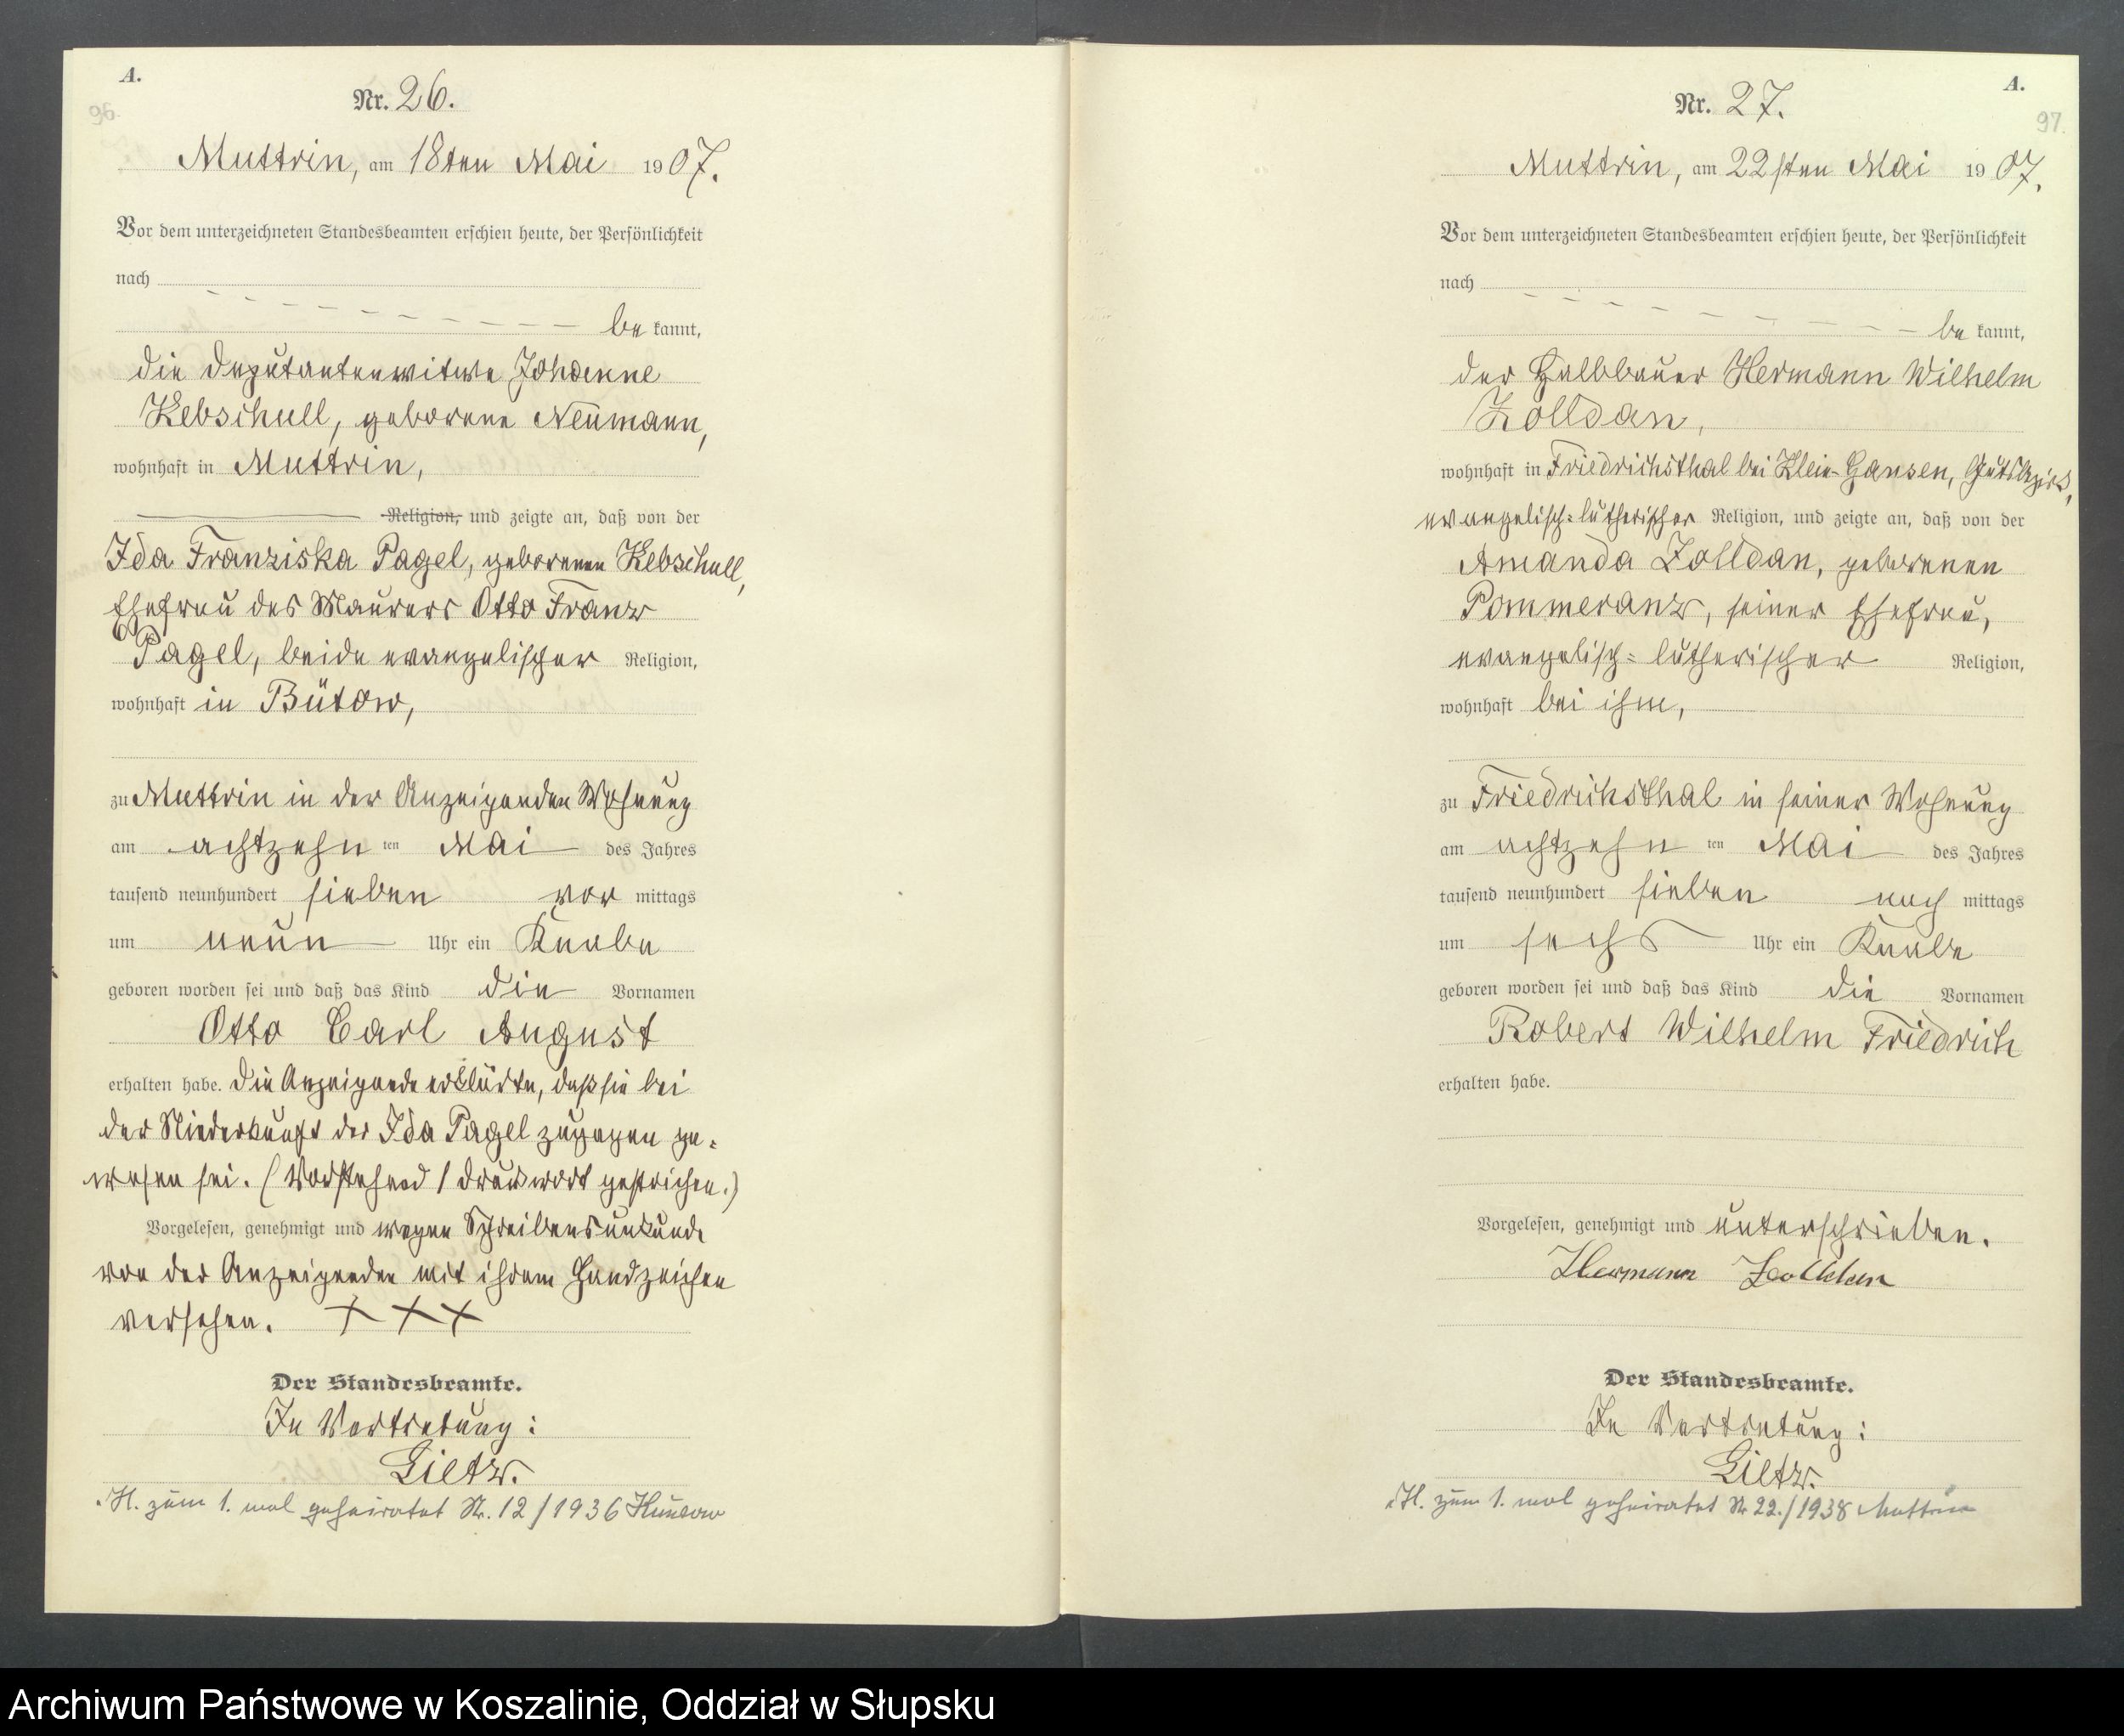 A.
96.
Nr. 26.
Muttrin, am 18ten Mai 1907.
Vor dem unterzeichneten Standesbeamten erschien heute, der Persönlichkeit
nach
be kannt,
die Deputantenwitwe Johanne
Kebschull, geborene Neumann,
wohnhaft in Muttrin,
Religion, und zeigte an, daß von der
Ida Franziska Pagel, geborenen Kebschull,
Ehefrau des Maurers Otto Franz
Pagel, beide evangelischer Religion,
wohnhaft in Bütow,
zu Muttrin in der Anzeigenden Wohnung
am achtzehn ten Mai des Jahres
tausend neunhundert sieben vor mittags
um neun Uhr ein Knabe
geboren worden sei und daß das Kind die Vornamen
Otto Carl August
erhalten habe. Die Anzeigende erklärte, daß sie bei
der Niederkunft der Ida Pagel zugegen ge=
wesen sei. (Vorstehend 1 Druckwort gestrichen.)
Vorgelesen, genehmigt und wegen Schreibensunkunde
von der Anzeigenden mit ihrem Handzeichen
versehen. + + +
Der Standesbeamte.
In Vertretung:
Lietz.
H. zum 1. mal geheiratet Nr. 12/1936
A.
97.
Nr. 27.
Muttrin, am 22sten Mai 1907.
Vor dem unterzeichneten Standesbeamten erschien heute, der Persönlichkeit
nach
be kannt,
der Halbbauer Hermann Wilhelm
Zolldan,
wohnhaft in Friedrichsthal bei Klein-Gansen, Gutsbezirk,
evangelisch=lutherischer Religion, und zeigte an, daß von der
Amanda Zolldan, geborenen
Pommeranz, seiner Ehefrau,
evangelisch=lutherischer Religion,
wohnhaft bei ihm,
zu Friedrichsthal in seiner Wohnung
am achtzehn ten Mai des Jahres
tausend neunhundert sieben nach mittags
um sechs Uhr ein Knabe
geboren worden sei und daß das Kind die Vornamen
Robert Wilhelm Friedrich
erhalten habe.
Vorgelesen, genehmigt und unterschrieben.
Hermann Zolldan
Der Standesbeamte.
In Vertretung:
Lietz.
H. zum 1. mal geheiratet Nr 22./1938 Muttrin
Archiwum Państwowe w Koszalinie, Oddział w Słupsku